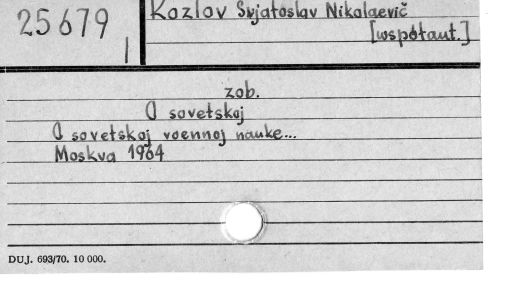 25679
1
Kozlov Svjatoslav Nikolaevič
[współaut.]
zob.
O sovetskoj
O sovetskoj voennoj nauke...
Moskva 1964
DUJ. 693/70. 10 000.